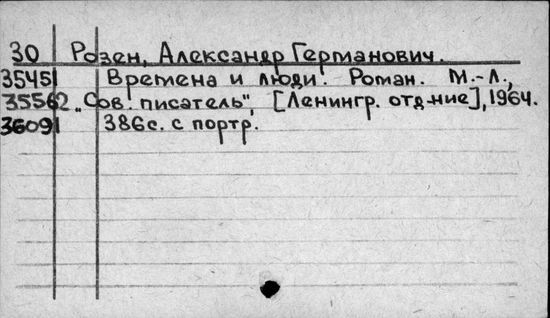 30 Розен, Александр Германович.
35451 Времена и люди. Роман. М.-Л.,
35562 „Сов. писатель", [Ленингр. отд-ние], 1964.
36091 386с. с портр.